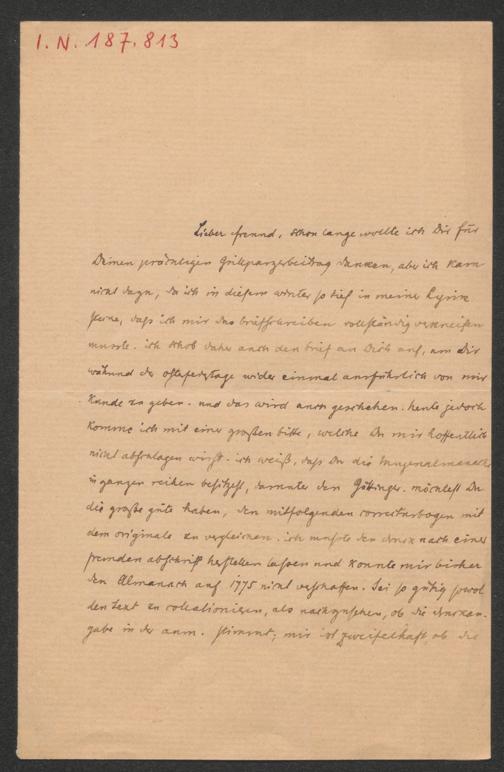 I. N. 187.813
Lieber freund, schon lange wollte ich Dir für
Deinen prächtigen Grillparzerbeitrag danken, aber ich kam
nicht dazu, da ich in diesem winter so tief in meiner Lyrik
stecke, daß ich mir das briefschreiben vollständig verkneifen
musste. ich schob daher auch den brief an Dich auf, um Dir
während der osterfeiertage wider einmal ausführlich von mir
kunde zu geben. und das wird auch geschehen. heute jedoch
komme ich mit einer großen bitte, welche Du mir hoffentlich
nicht abschlagen wirst. ich weiß, daß Du die Musenalmanache
in ganzen reihen besitzest, darunter den Göttinger. möchtest Du
die große güte haben, den mitfolgenden correcturbogen mit
dem originale zu vergleichen. ich musste den druck nach einer
fremden abschrift herstellen lassen und konnte mir bisher
den Almanach auf 1775 nicht verschaffen. Sei so gütig sowol
den text zu collationieren, als nachzusehen, ob die druckan-
gabe in der anm. stimmt; mir ist zweifelhaft, ob die